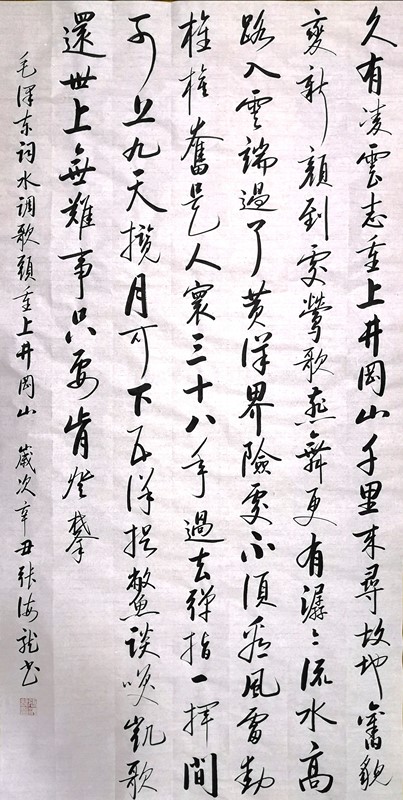 久有凌雲志重上井岡山千里来尋故地舊貌
變新顔到處鶯歌燕舞更有潺〻流水高
路入雲端過了黄洋界險處不須看風雷動
旌旗奮是人寰三十八年過去彈指一揮間
可上九天攬月可下五洋捉鱉談笑凱歌
還世上無難事只要肯登攀
毛澤东词水调歌頭重上井岡山 歲次辛丑张海龍书